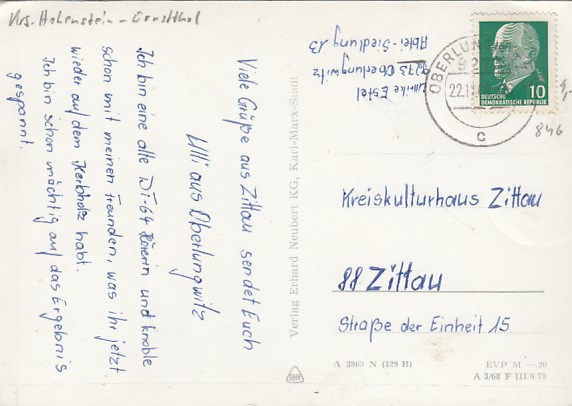 Krs. Hohenstein-Ernstthal
Viele Grüße aus Zittau sendet Euch
Ulli aus Oberlungwitz
Ich bin eine alte DT-64 Hörerin und knoble
schon mit meinen Freunden, was ihr jetzt
wieder auf dem Kerbholz habt.
Ich bin schon mächtig auf das Ergebnis
gespannt.
Verlag Erhard Neubert KG, Karl-Marx-Stadt
Ulrike Estel
9273 Oberlungwitz
Abtei-Siedlung 13
OBERLUN
22.1
c
10
DEUTSCHE
DEMOKRATISCHE REPUBLIK
846
Kreiskulturhaus Zittau
88 Zittau
Straße der Einheit 15
A 3960 N (129 B)
EVP M —.20
A 3/68 F III/6/75